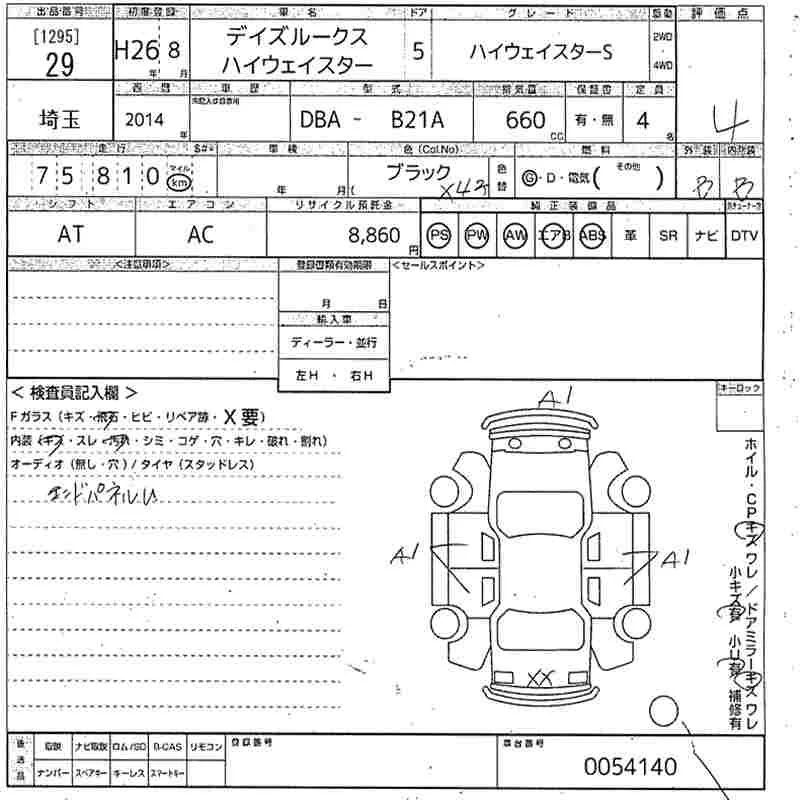 出品番号 初度登録 車名 ドア グレード 駆動 評価点
[1295] 29
H26 8
年 月
デイズルークス
ハイウェイスター
5
ハイウェイスターS
2WD
4WD
4
週間 車歴 型式 排気量 保証書 定員
埼玉
2014 年
DBA - B21A
660 CC
有・無
4 名
走行 S#* 車検 色(Col.No) 燃料 外装 内装
75810
マイル
km
年 月(
ブラック
X42
色替
G・D・電気( その他 )
B B
シフト エアコン リサイクル預託金 純正装備品
AT AC 8,860 円
PS PW AW エアB ABS 革 SR ナビ DTV
<注意事項> 登録書類有効期限 <セールスポイント>
月 日
輸入車
ディーラー・並行
左H ・ 右H
< 検査員記入欄 >
キーロック
Fガラス(キズ・飛石・ヒビ・リペア跡・X要)
内装(キズ・スレ・汚れ・シミ・コゲ・穴・キレ・破れ・割れ)
オーディオ(無し・穴)/タイヤ(スタッドレス)
エンドパネルU
A1
A1
A1
XX
ホイル・CPキズワレ/ドアミラーキズワレ
小キズ有 小U有 補修有
後送品
取説 ナビ取説 ロム/SD B-CAS リモコン
ナンバー スペアキー キーレス スマートキー
登録番号
車台番号
0054140